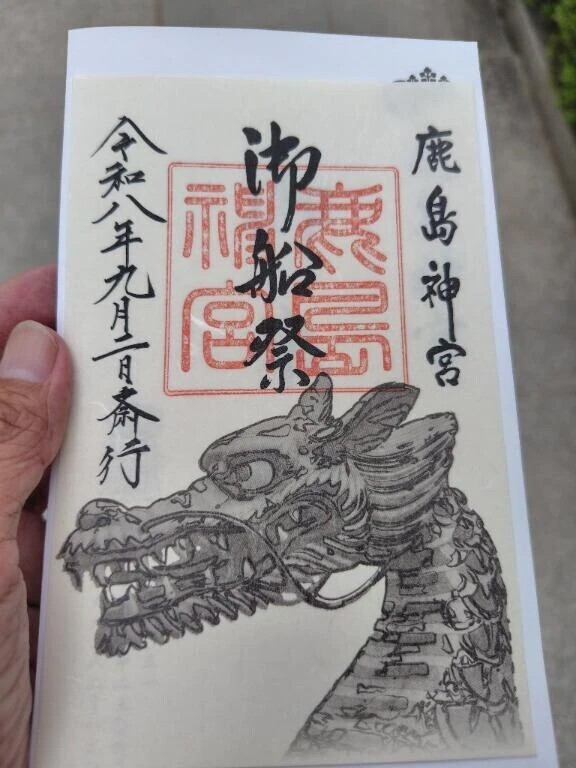 鹿島神宮
御船祭
鹿島
神宮
令和八年九月二日斎行